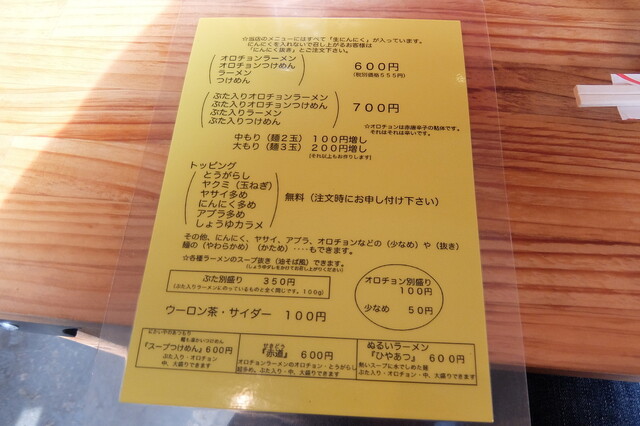 ☆当店のメニューにはすべて「生にんにく」が入っています。
にんにくを入れないで召し上がるお客様は
「にんにく抜き」とご注文下さい。
オロチョンラーメン
オロチョンつけめん
ラーメン
つけめん
600円
(税別価格555円)
ぶた入りオロチョンラーメン
ぶた入りオロチョンつけめん
ぶた入りラーメン
ぶた入りつけめん
700円
☆オロチョンは赤唐辛子の粘体です。
それはそれは辛いです。
中もり(麺2玉) 100円増し
大もり(麺3玉) 200円増し
(それ以上もお作りします)
トッピング
とうがらし
ヤクミ(玉ねぎ)
ヤサイ多め
にんにく多め
アブラ多め
しょうゆカラメ
無料(注文時にお申し付け下さい)
その他、にんにく、ヤサイ、アブラ、オロチョンなどの(少なめ)や(抜き)
麺の(やわらかめ)(かため)‥‥もできます。
☆各種ラーメンのスープ抜き(油そば風)できます。
(しょうゆダレをかけてお召し上がりください)
ぶた別盛り 350円
(ぶた入りラーメンにのっているものと全く同じです。100g)
オロチョン別盛り
100円
少なめ 50円
ウーロン茶・サイダー 100円
麺も温かいつけめん
『スープつけめん』600円
ぶた入り・オロチョン
中、大盛りできます
せきどう
『赤道』 600円
オロチョンラーメンのオロチョン・とうがらし
超多め、ぶた入り・中、大盛りできます
ぬるいラーメン
『ひやあつ』600円
熱いスープに水でしめた麺
ぶた入り・オロチョン・中、大盛りできます